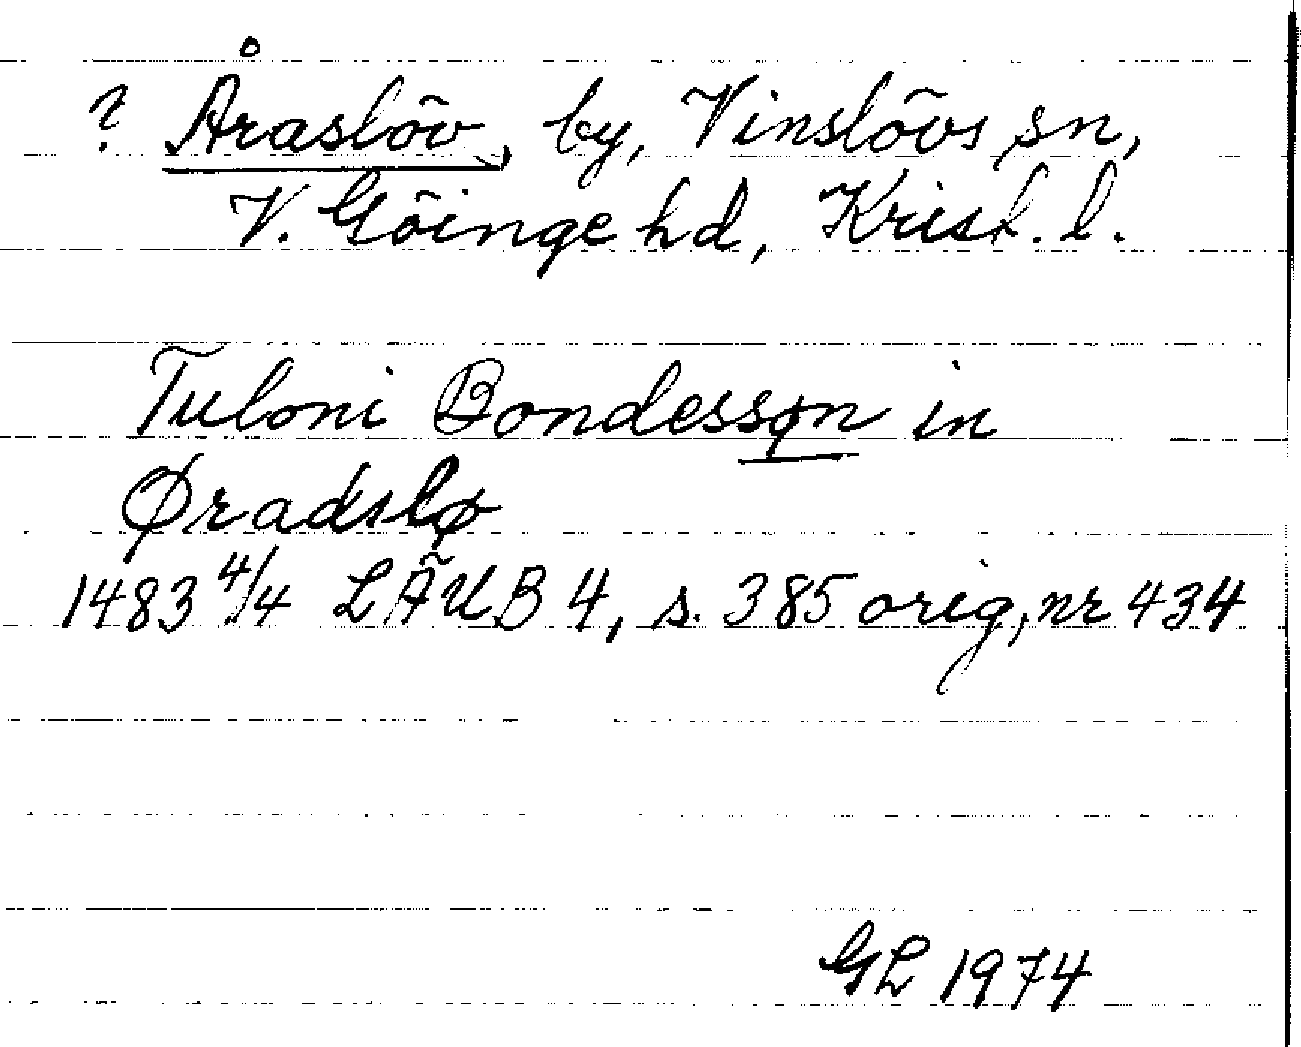 ? Åraslöv, by, Vinslövs sn,
V. Göinge hd, Krist. l.
Tuloni Bondessøn in
Øradslø
1483 4/4 LÄUB 4, s. 385 orig, nr 434
GL 1974